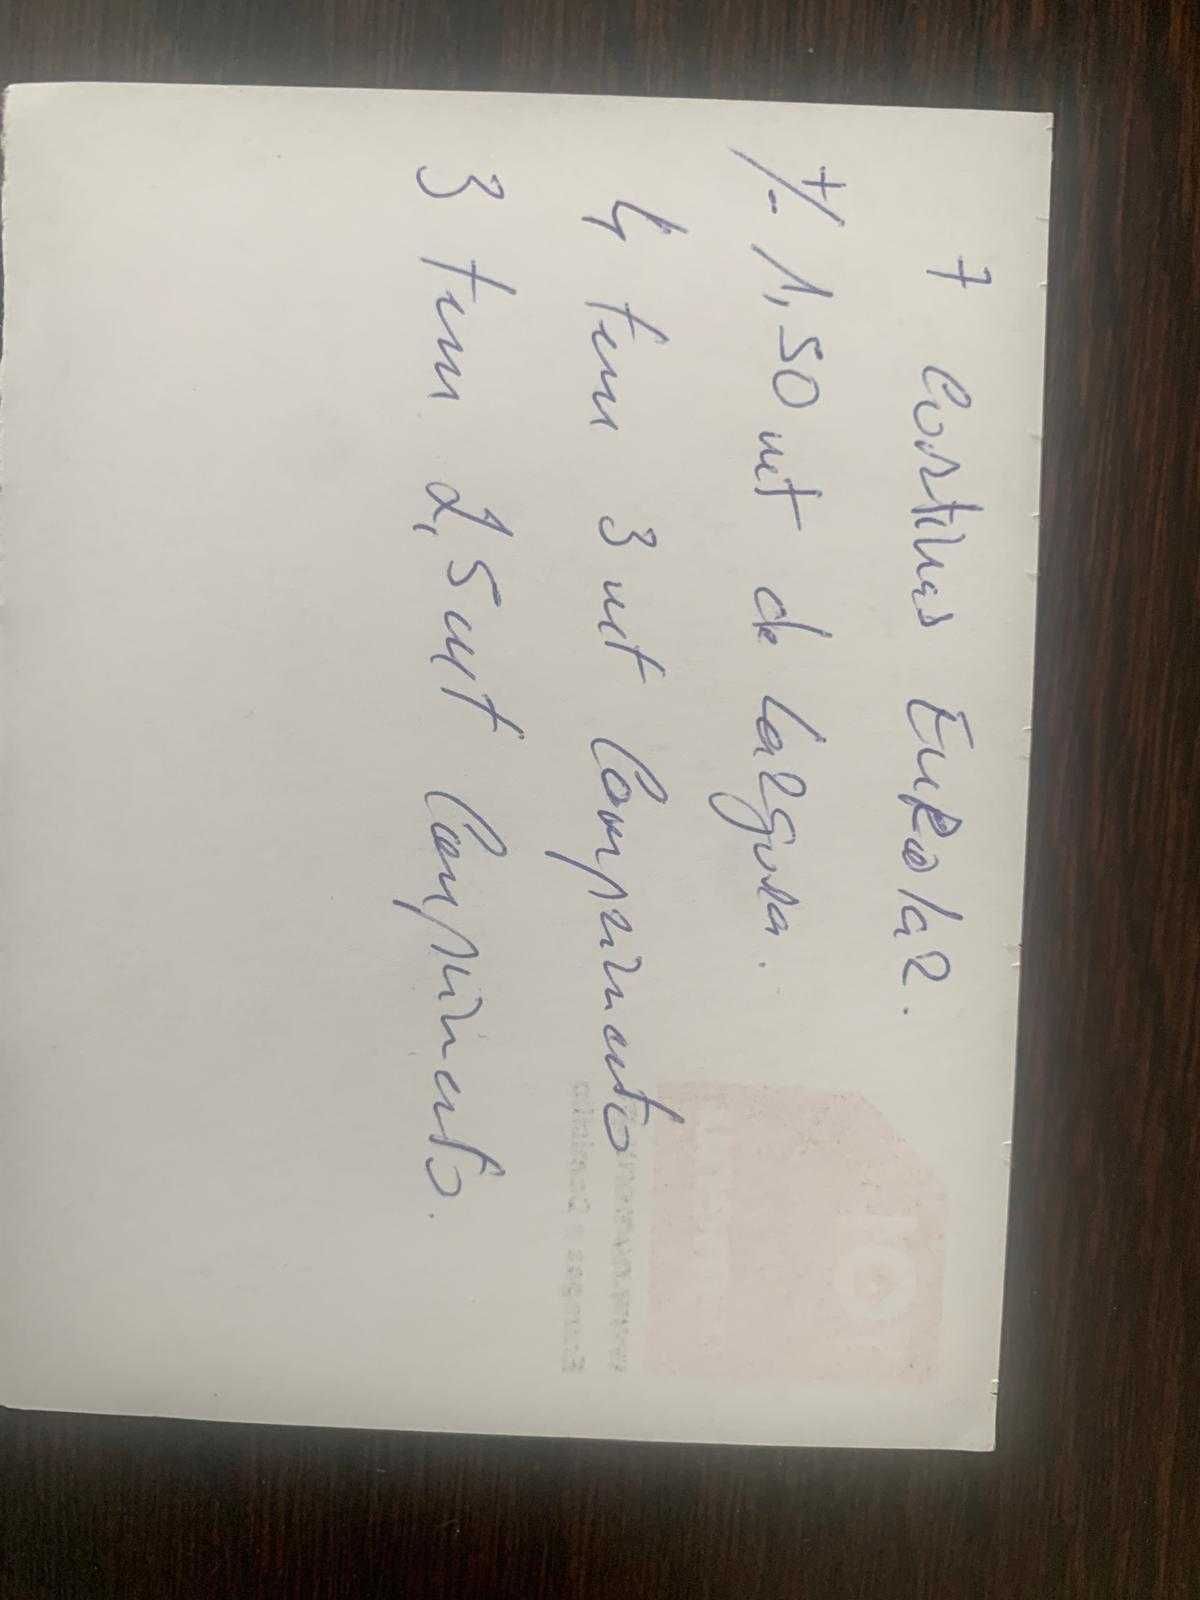 7 Cortinas Enrolar.
+/- 1,50 mt de largura.
4 tem 3 mt Comprimento
3 tem 2,5 mt Comprimento.